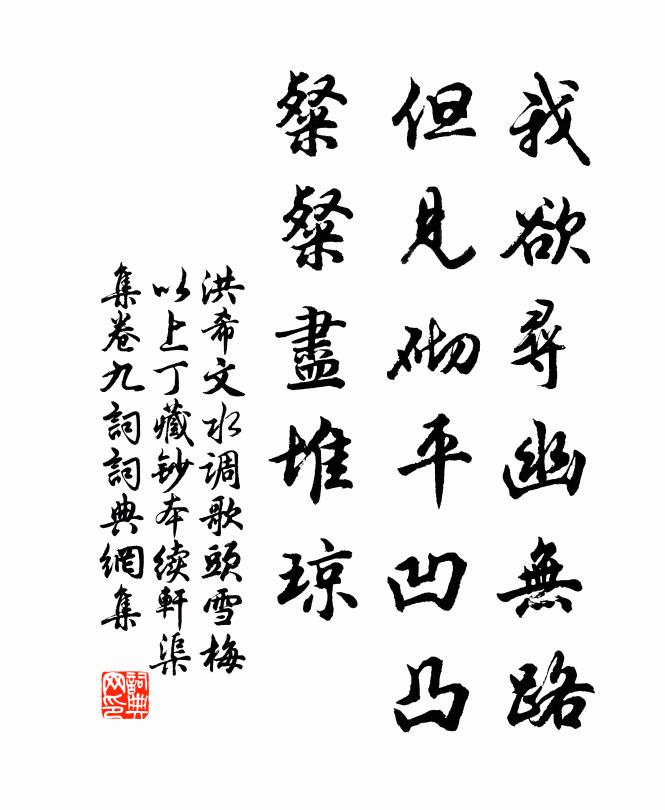 我欲尋幽無路
但見砌平凹凸
粲粲盡堆琼
洪希文水调歌頭雪梅
以上丁藏鈔本续軒渠
集卷九詞詞典網集
詞典
网印